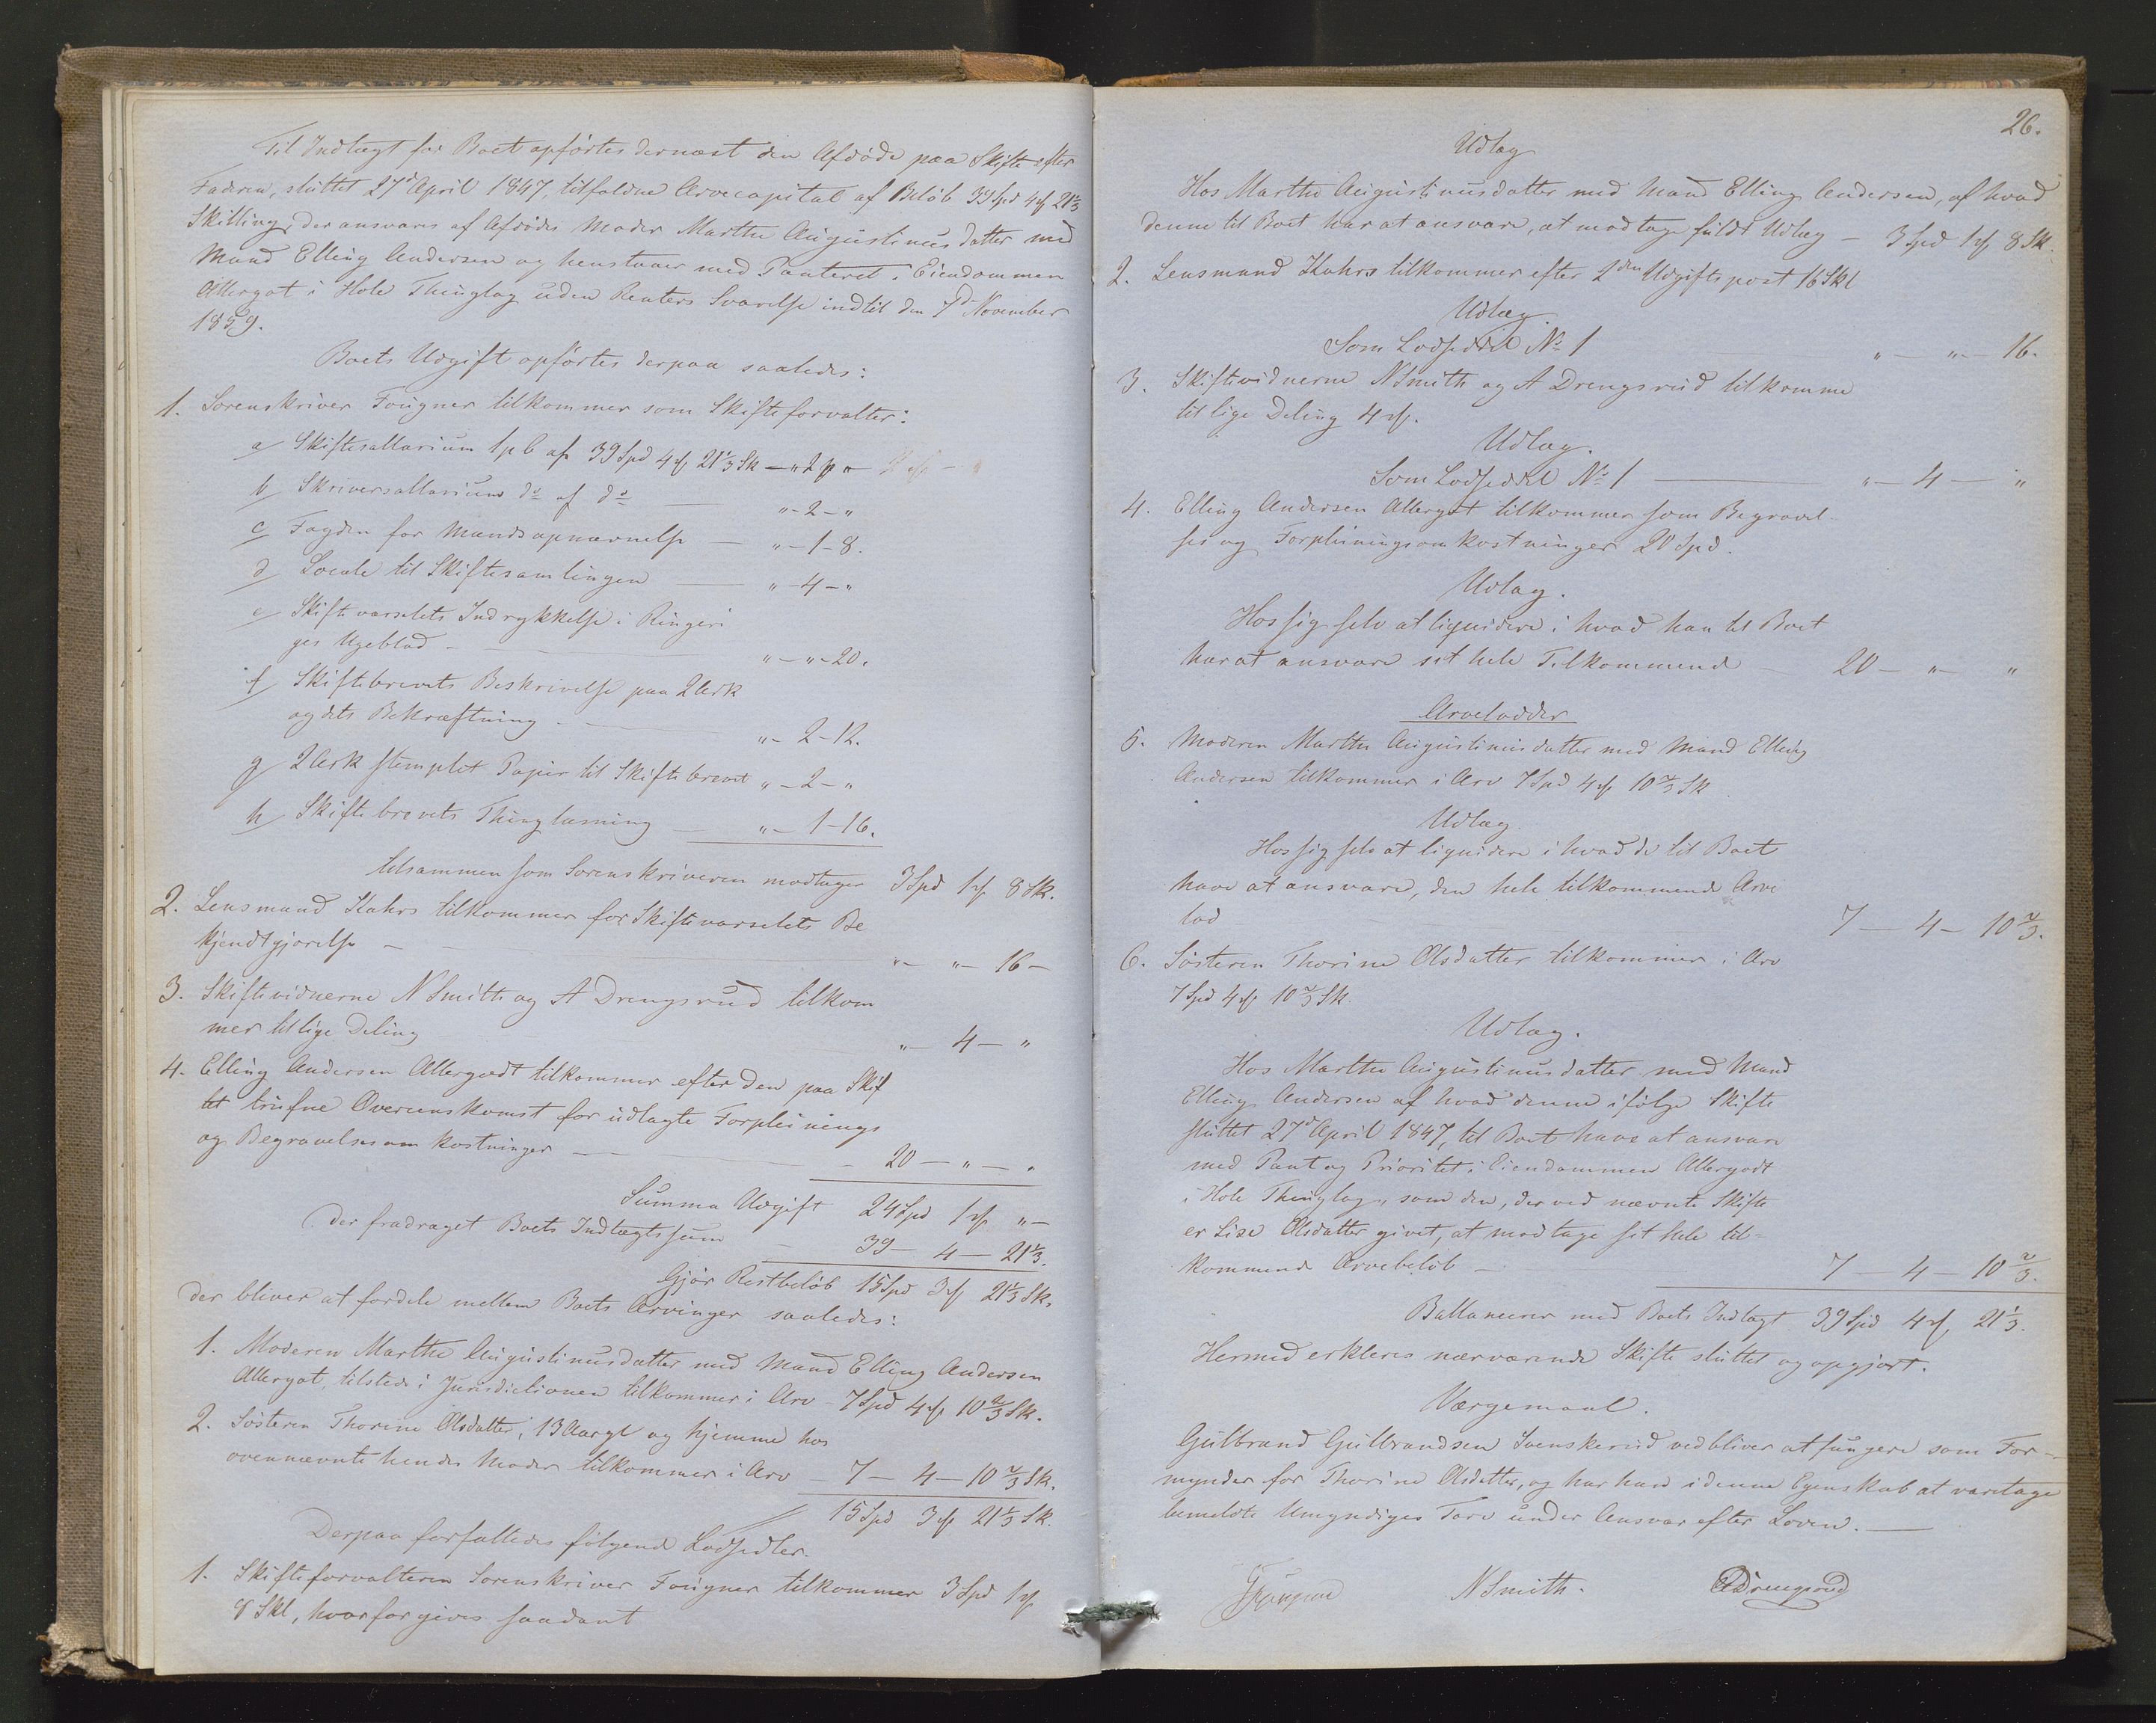 Til Indtægt for Boet opførtes dernæst den Afdøde paa Skifte efter
Faderen, sluttet 27d April 1847, tilfaldne Arvecapital af Beløb 39 Spd 4 # 21 1/3
Skilling, der ansvares af Afdødes Moder Marthe Augustinusdatter med
Mand Elling Andersen og henstaaer med Panteret i Eiendommen
Allergot i Hole Thinglag uden Renters Svarelse indtil den 7d November
1859.
Boets Udgift opførtes derpaa saaledes:
1. Sorenskriver Fougner tilkommer som Skifteforvalter:
a/ Skiftesallarium 1 p C af 39 Spd 4 # 21 1/3 Sk — " 2 # "
b/ Skriversallarium do af do — " - 2 - "
c/ Fogden for Mandsopnævnelse — " - 1 - 8.
d/ Locale til Skiftesamlingen — " - 4 - "
e/ Skiftevarselets Indrykkelse i Ringeri
ges Ugeblad — " - " - 20.
f/ Skiftebrevets Beskrivelse paa 2 Ark
og dets Bekræftning — " - 2 - 12.
g/ 2 Ark stemplet Papir til Skiftebrevet " - 2 - "
h/ Skiftebrevets Thinglæsning — " - 1 - 16.
tilsammen som Sorenskriveren modtager 3 Spd 1 # 8 Sk.
2. Lensmand Kahrs tilkommer for Skiftevarselets Be
kjendtgjørelse — " - " - 16 -
3. Skiftevidnerne N Smith og A Drengsrud tilkom
mer til lige Deling " - 4 - "
4. Elling Andersen Allergodt tilkommer efter den paa Skif
tet trufne Overenskomst for udlagte Forpleinings
og Begravelsesomkostninger — 20 - " - "
Summa Udgift 24 Spd 1 # " -
Der fradraget Boets Indtægtssum — 39 - 4 - 21 1/3.
Gjør Restbeløb 15 Spd 3 # 21 1/3 Sk.
der bliver at fordele mellem Boets Arvinger saaledes:
1. Moderen Marthe Augustinusdatter med Mand Elling Andersen
Allergot, tilstede i Jurisdictionen tilkommer i Arv - 7 Spd 4 # 10 2/3 Sk.
2. Søsteren Thorine Olsdatter, 13 Aar gl og hjemme hos
ovennævnte hendes Moder tilkommer i Arv - 7 - 4 - 10 2/3 Sk.
15 Spd 3 # 21 1/3 Sk.
Derpaa forfattedes følgende Lodsedler.
1. Skifteforvalteren Sorenskriver Fougner tilkommer 3 Spd 1 #
8 Skl, hvorfor gives saadant
26.
Udlæg
Hos Marthe Augustinusdatter med Mand Elling Andersen, af hvad
denne til Boet har at ansvare, at modtage fuldt Udlæg — 3 Spd 1 # 8 Sk.
2. Lensmand Kahrs tilkommer efter 2den Udgiftspost 16 Skl
Udlæg
Som Lodseddel No 1 — " - " - 16.
3. Skiftevidnerne N Smith og A Drengsrud tilkomme
til lige Deling 4 #.
Udlæg.
Som Lodseddel No 1 — " - 4 - "
4. Elling Andersen Allergot tilkommer som Begravel-
ses og Forpleiningsomkostninger 20 Spd.
Udlæg.
Hos sig selv at liqvidere i hvad han til Boet
har at ansvare sit hele Tilkommende — 20 - " - "
Arvelodder
5. Moderen Marthe Augustinusdatter med Mand Elling
Andersen tilkommer i Arv 7 Spd 4 # 10 2/3 Sk
Udlæg
Hos sig selv at liqvidere i hvad de til Boet
have at ansvare, den hele tilkommende Arve
lod 7 - 4 - 10 2/3.
6. Søsteren Thorine Olsdatter tilkommer i Arv
7 Spd 4 # 10 2/3 Sk.
Udlæg.
Hos Marthe Augustinusdatter med Mand
Elling Andersen af hvad denne ifølge Skifte
sluttet 27d April 1847, til Boet have at ansvare
med Pant og Prioritet i Eiendommen Allergodt
i Hole Thinglag, som den, der ved nævnte Skifte
er Lise Olsdatter givet, at modtage sit hele til-
kommende Arvebeløb — 7 - 4 - 10 2/3.
Ballancerer med Boets Indtægt 39 Spd 4 # 21 1/3.
Hermed erkleres nærværende Skifte sluttet og opgjort.
Værgemaal.
Gulbrand Gulbrandsen Svenskerud vedbliver at fungere som For-
mynder for Thorine Olsdatter, og har han i denne Egenskab at varetage
bemeldte Umyndiges Tarv under Ansvar efter Loven. —
Fougner N Smith. ADrengsrud